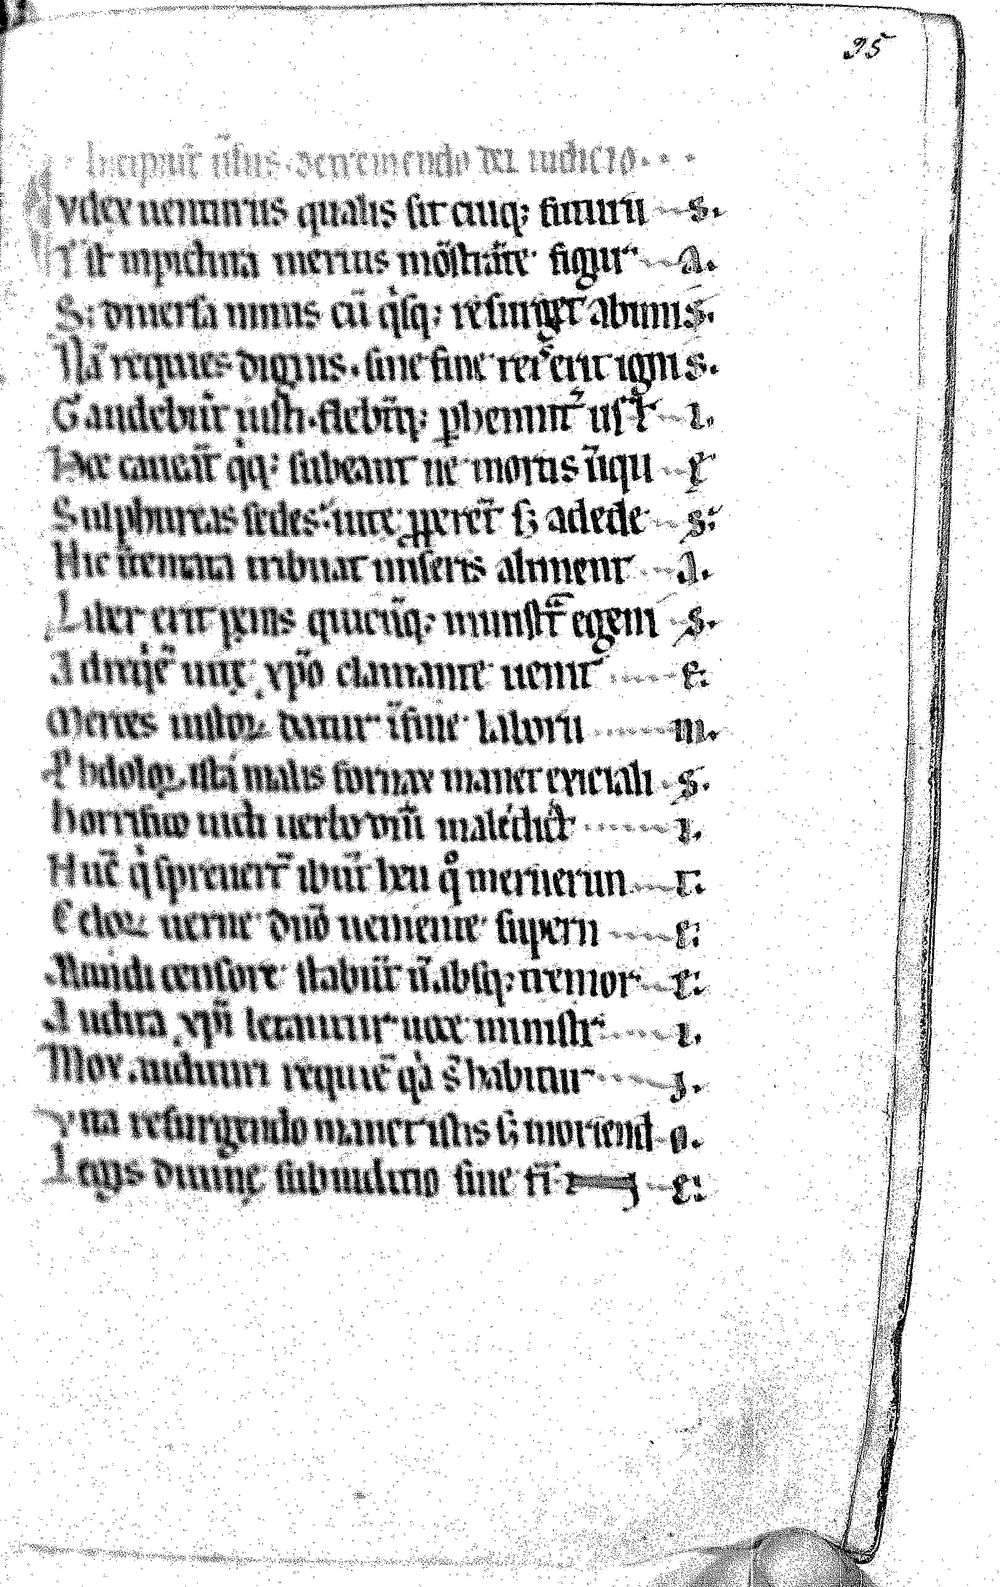 95
Incipiūt ūsus. de tremendo dei iudicio...
Iudex uenturus qualis sit cuiq; futuru s.
Est inpictura meritis mōstrāte figur a.
Si diuersa nimis cū q̇sq; resurget abimis.
Nā requies dignis. sine fine erit ignis.
Gaudebūt iusti. flebūtq; 
Hec caueāt q̇q; subeant ne mortis ūqu e
Sulphureas sedes s; adede s:
Hic tribuat miseris aliment a.
Liber erit penis quicūq; ministrat egeni s.
uox xp̄o clamante uenit e:
Merces iustoꝝ datur īfine laboru m.
Ph malis fornax manet exiciali s.
horrifico uicti uerbo dn̄i maledict i.
Huc q̇ spreuerūt ibūt heu q̊ meruerun t:
Celoꝝ uerne dn̄o ueniente supern e:
Mundi censore stabūt ū absq; tremor e:
Audita xp̄i letantur uoce ministr i.
Mox audituri requiē habitur i.
Vna resurgendo manet istis s; moriend o.
Legis diuine subiudicio sine fi e: